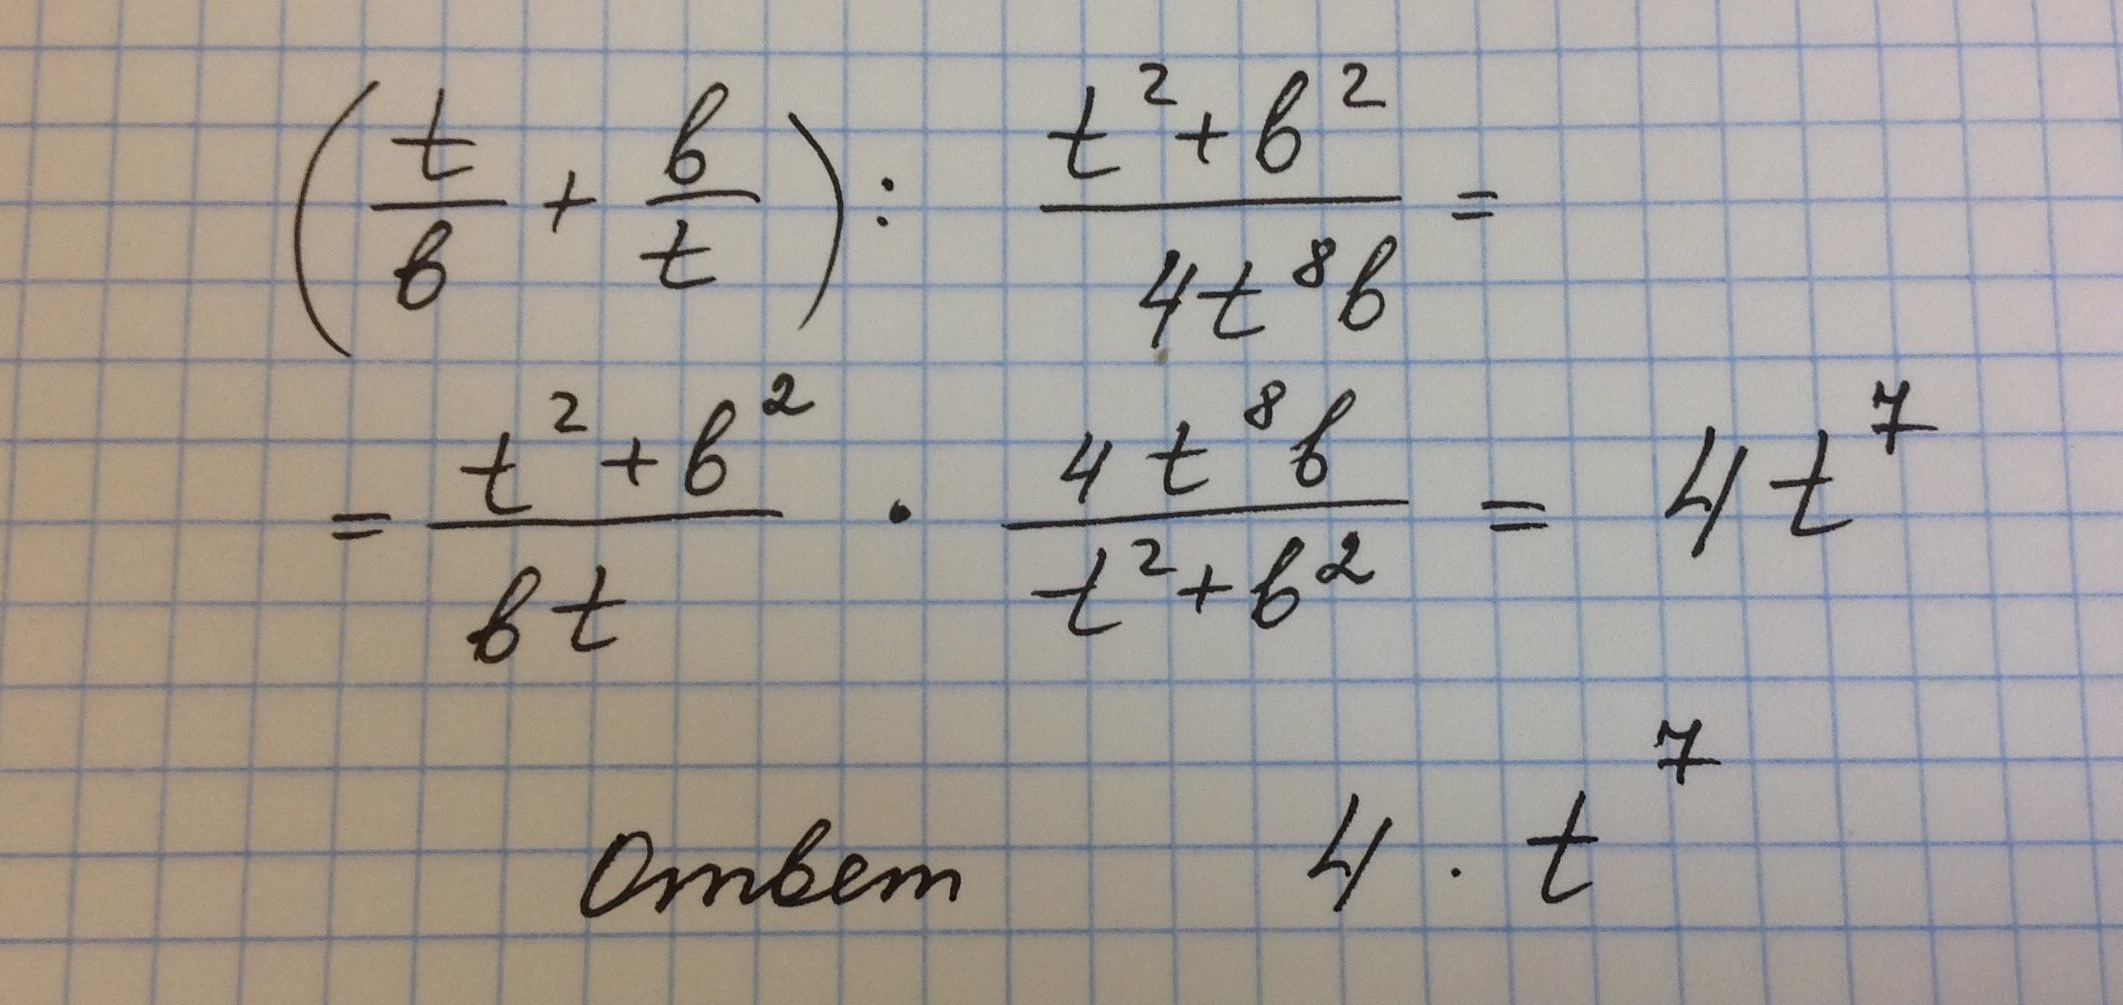 (t/b + b/t) : (t² + b²)/(4t⁸b) =
= (t² + b²)/(bt) · (4t⁸b)/(t² + b²) = 4t⁷
Ответ 4 · t⁷